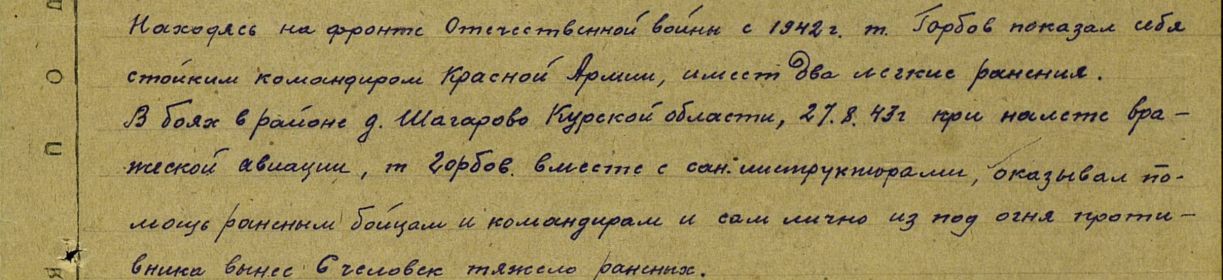 Находясь на фронте Отечественной войны с 1942 г. т. Горбов показал себя
стойким командиром Красной Армии, имеет два легкие ранения.
В боях в районе д. Шагарово Курской области, 27.8.43г при налете вра-
жеской авиации, т Горбов. вместе с сан. инструкторами, оказывал по-
мощь раненым бойцам и командирам и сам лично из под огня проти-
вника вынес 6 человек тяжело раненых.